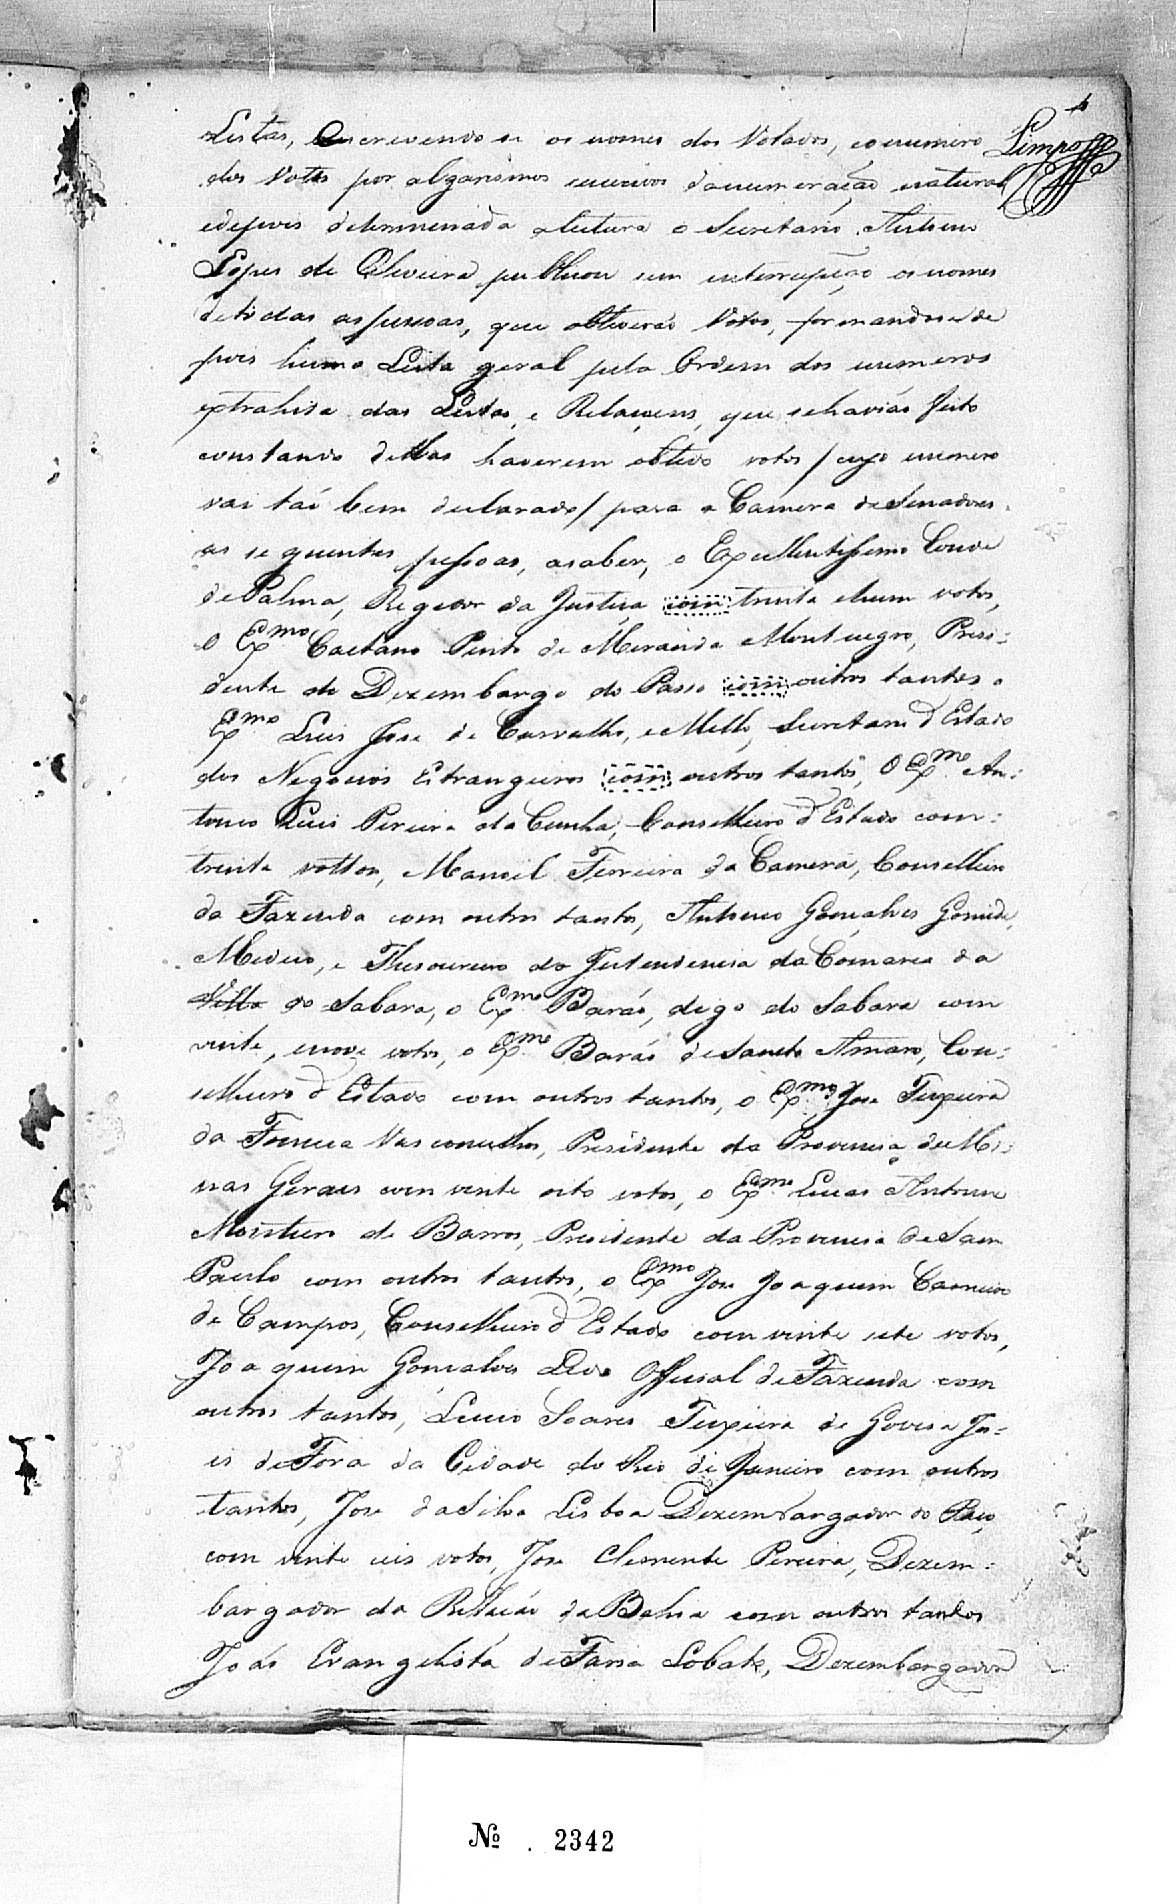 4
Limpo
Listas, Escrevendo se os nomes dos Votados, eo numero
dos Votos por algarismos sucecivos da numeração natural
edepois determinada a leitura o Secretario Antonio
Lopes de Oliveira publicou sem interrupção os nomes
detodas as pessoas, que obtiverão Votos, formandose de
pois huma Lista geral pela Ordem dos numeros
extrahida das Listas, e Relaçoens, que se havião feito
constando dellas haverem obtido votos / cujo numero
vai taõ bem declarado / para a Camera de Senadores
as seguintes pessoas, asaber, o Excellentissimo Conde
de Palma, Regedor da Justiça com trinta ehum votos,
O Exmo Caetano Pinto de Miranda Montenegro, Presi:
dente do Dezembargo do Passo com outros tantos o
Exmo Luis Jose de Carvalho, e Mello, Secretario d'Estado
dos Negocios Etrangeiros com outros tantos, O Exmo An:
tonio Luis Pereira da Cunha, Conselheiro d'Estado com:
trinta vottos, Manoel Ferreira da Camera, Conselheiro
da Fazenda com outros tantos, Antonio Gonçalves Gomide,
Medico, e Thesoureiro da Intendencia da Comarca da
Villa do Sabara, o Exmo Barão, digo do Sabara com
vinte, enove votos, o Exmo Barão de Sancto Amaro, Con:
selheiro d'Estado com outros tantos, o Exmo Jose Teixeira
da Fonceca Vasconcellos, Presidente da Provincia de Mi:
nas Geraes com vinte oito votos, o Exmo Lucas Antonio
Monteiro de Barros, Presidente da Provincia de Sam
Paulo com outros tantos, o Exmo Jose Joaquim Carneiro
de Campos, Conselheiro d'Estado com vinte sete votos,
Joaquim Gonçalves Ledo Official de Fazenda com
outros tantos, Lucio Soares Teixeira de Gouvea Ju-
is de Fora da Cidade do Rio de Janeiro com outros
tantos, Jose da Silva Lisboa Dezembargador do Paço,
com vinte seis votos, Jose Clemente Pereira, Dezem:
bargador da Relação da Bahia com outros tantos
João Evangelista de Faria Lobato, Dezembargador
№ . 2342